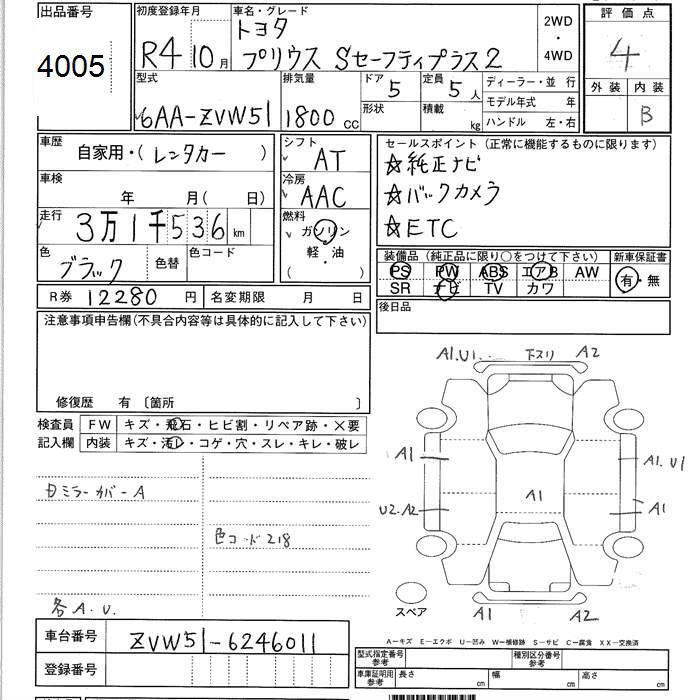 出品番号
4005
初度登録年月
R4 10月
車名・グレード
トヨタ
プリウス Sセーフティプラス2
2WD
・
4WD
評価点
4
外装 内装
B
型式
6AA-ZVW51
排気量
1800cc
ドア
5
形状
定員
5人
積載
kg
ディーラー・並行
モデル年式 年
ハンドル 左・右
車歴
自家用・(レンタカー)
車検
年 月( 日)
走行
3万1千536km
色
ブラック
色替
色コード
シフト
AT
冷房
AAC
燃料
ガソリン
軽・油
( )
セールスポイント(正常に機能するものに限ります)
☆純正ナビ
☆バックカメラ
☆ETC
装備品(純正品に限り○をつけて下さい) 新車保証書
PS PW ABS エアB AW
SR ナビ TV カワ
有・無
R券 12280円 名変期限 月 日
後日品
注意事項申告欄(不具合内容等は具体的に記入して下さい)
修復歴 有 〔箇所 〕
検査員
記入欄
FW キズ・飛石・ヒビ割・リペア跡・×要
内装 キズ・汚レ・コゲ・穴・スレ・キレ・破レ
ミラーカバーA
色コード218
各A.U.
A1.U1. 下スリ A2
A1
A1.U1
U2.A2
A1
A1
スペア
A1 A2
A−キズ E−エクボ U−凹み W−補修跡 S−サビ C−腐食 XX−交換済
車台番号 ZVW51-6246011
登録番号
型式指定番号
参考
種別区分番号
参考
車庫証明用
参考
長さ cm 幅 cm 高さ cm